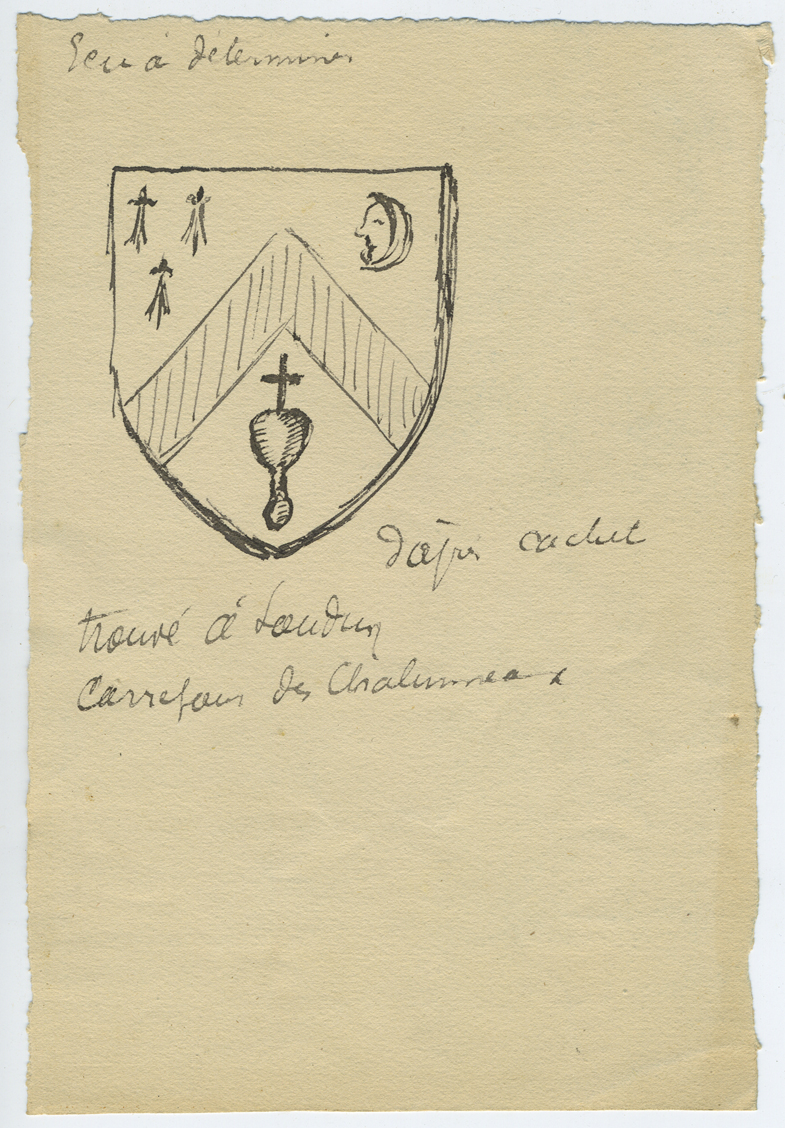 Ecu à déterminer
d'après cachet
trouvé à Loudun
Carrefour des Chalumeaux